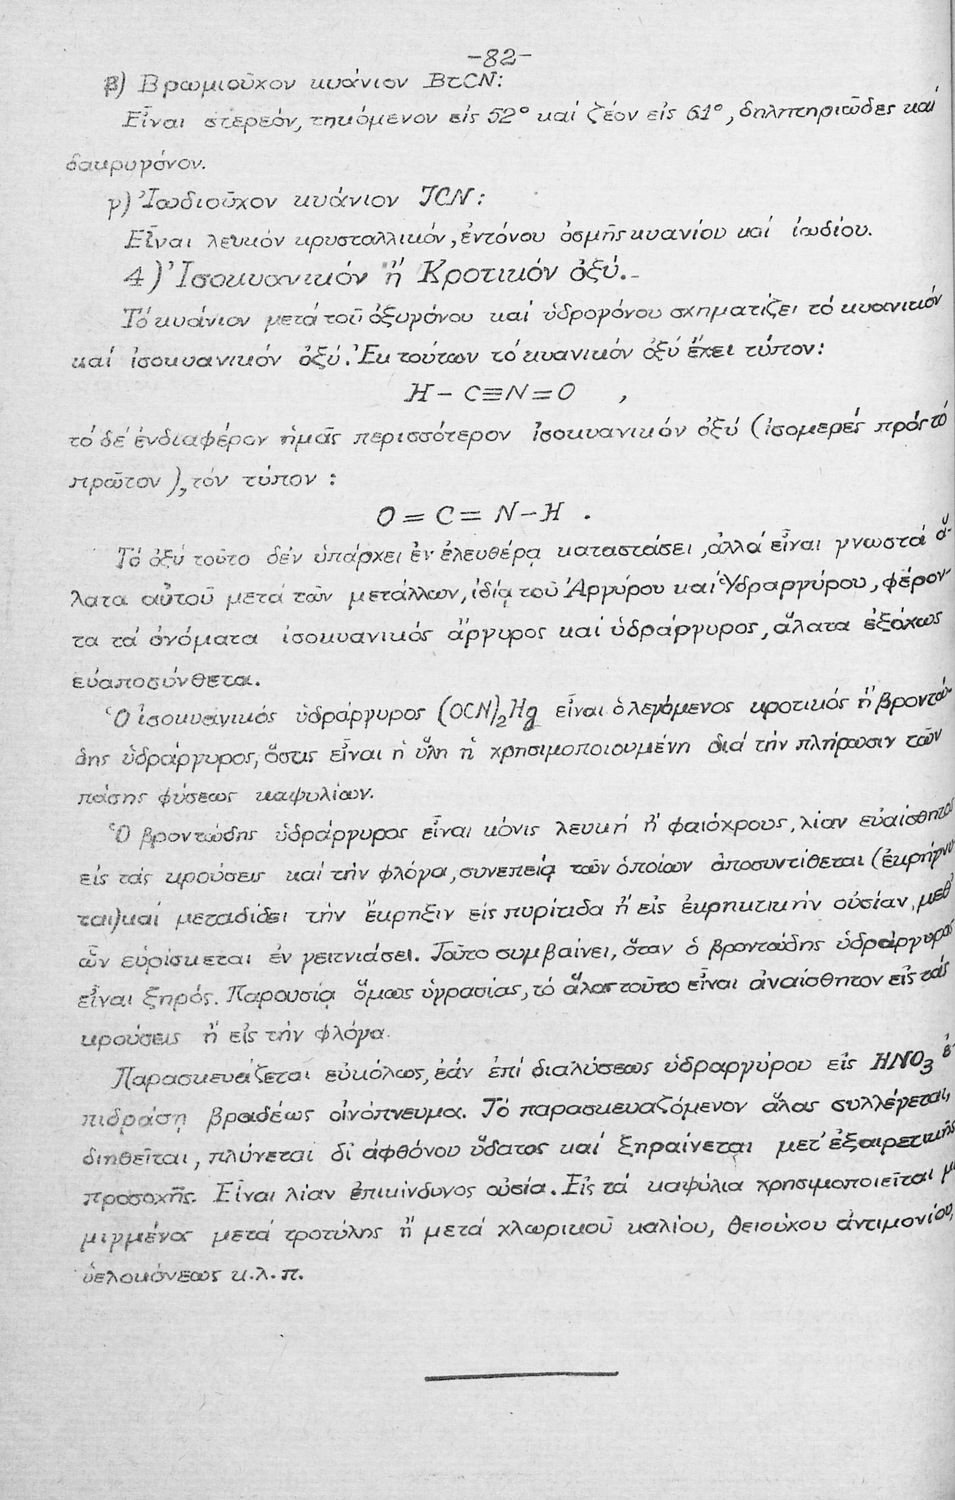 -82-
β) Βρωμιοῦχον κυάνιον BrCN:
Εἶναι στερεόν, τηκόμενον εἰς 52° καί ζέον εἰς 61°, δηλητηριῶδες καί
δακρυγόνον.
γ) Ἰωδιοῦχον κυάνιον JCN:
Εἶναι λευκόν κρυσταλλικόν, ἐντόνου ὀσμῆς κυανίου καί ἰωδίου.
4) Ἰσοκυανικόν ἤ Κροτικόν ὀξύ.-
Τό κυάνιον μετά τοῦ ὀξυγόνου καί ὑδρογόνου σχηματίζει τό κυανικόν
καί ἰσοκυανικόν ὀξύ. Ἐκ τούτων τό κυανικόν ὀξύ ἔχει τύπον:
H - C≡N=O ,
τό δέ ἐνδιαφέρον ἡμᾶς περισσότερον ἰσοκυανικόν ὀξύ (ἰσομερές πρός τό
πρῶτον), τόν τύπον :
O = C = N-H .
Τό ὀξύ τοῦτο δέν ὑπάρχει ἐν ἐλευθέρᾳ καταστάσει, ἀλλά εἶναι γνωστά ἅ-
λατα αὐτοῦ μετά τῶν μετάλλων, ἰδίᾳ τοῦ Ἀργύρου καί Ὑδραργύρου, φέρον-
τα τά ὀνόματα ἰσοκυανικός ἄργυρος καί ὑδράργυρος, ἅλατα ἐξόχως
εὐαποσύνθετα.
Ὁ ἰσοκυανικός ὑδράργυρος (OCN)₂Hg εἶναι ὁ λεγόμενος κροτικός ἤ βροντώ-
δης ὑδράργυρος, ὅστις εἶναι ἡ ὕλη ἡ χρησιμοποιουμένη διά τήν πλήρωσιν τῶν
πάσης φύσεως καψυλίων.
Ὁ βροντώδης ὑδράργυρος εἶναι κόνις λευκή ἤ φαιόχρους, λίαν εὐαίσθητος
εἰς τάς κρούσεις καί τήν φλόγα, συνεπείᾳ τῶν ὁποίων ἀποσυντίθεται (ἐκρήγνυ
ται) καί μεταδίδει τήν ἔκρηξιν εἰς πυρίτιδα ἤ εἰς ἐκρηκτικήν οὐσίαν, μεθ'
ὧν εὑρίσκεται ἐν γειτνιάσει. Τοῦτο συμβαίνει, ὅταν ὁ βροντώδης ὑδράργυρος
εἶναι ξηρός. Παρουσίᾳ ὅμως ὑγρασίας, τό ἅλας τοῦτο εἶναι ἀναίσθητον εἰς τάς
κρούσεις ἤ εἰς τήν φλόγα.
Παρασκευάζεται εὐκόλως, ἐάν ἐπί διαλύσεως ὑδραργύρου εἰς HNO₃ ἐ-
πιδράσῃ βραδέως οἰνόπνευμα. Τό παρασκευαζόμενον ἅλας συλλέγεται,
διηθεῖται, πλύνεται δι' ἀφθόνου ὕδατος καί ξηραίνεται μετ' ἐξαιρετικῆς
προσοχῆς. Εἶναι λίαν ἐπικίνδυνος οὐσία. Εἰς τά καψύλια χρησιμοποιεῖται με
μιγμένος μετά τροτύλης ἤ μετά χλωρικοῦ καλίου, θειούχου ἀντιμονίου,
ὑελοκόνεως κ.λ.π.